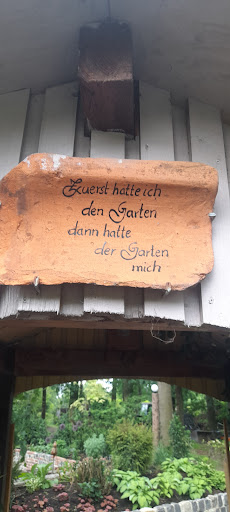 Zuerst hatte ich
den Garten
dann hatte
der Garten
mich